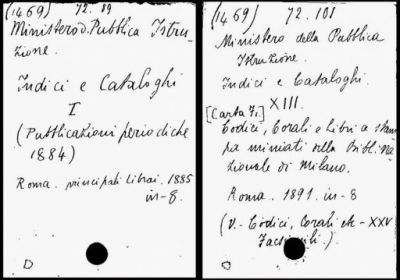 (1469) 72. 89
Ministero d. Pubblica Istru-
zione.
Indici e Cataloghi
I
(Pubblicazioni periodiche
1884)
Roma. principali librai. 1885
in-8.
D
(1469) 72.101
Ministero della Pubblica
Istruzione.
Indici e Cataloghi.
XIII.
[Carta Ti.]
Codici, Corali e libri a stam
pa miniati della Bibl. Na
zionale di Milano.
Roma. 1891. in-8
(V. - Codici, Corali etc - XXV
Facsimili.)
D